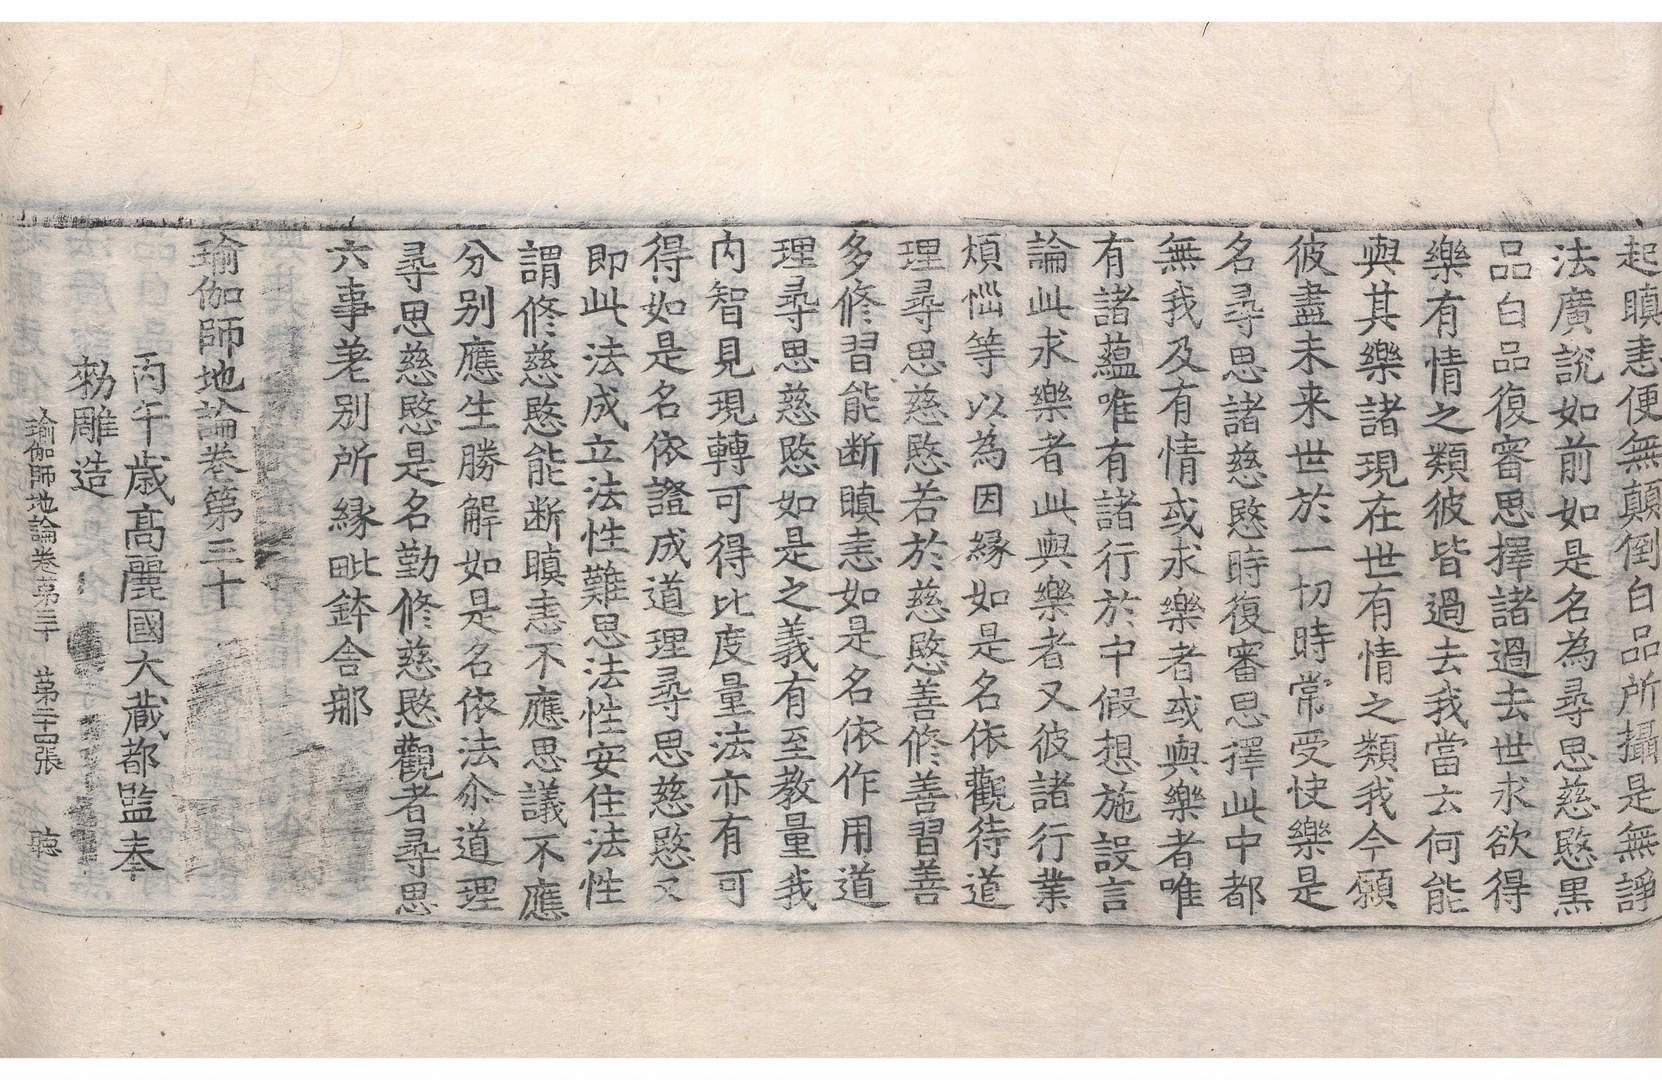 起瞋恚便無顛倒白品所攝是無諍
法廣說如前如是名為尋思慈愍黑
品白品復審思擇諸過去世求欲得
樂有情之類彼皆過去我當云何能
與其樂諸現在世有情之類我今願
彼盡未来世於一切時常受快樂是
名尋思諸慈愍時復審思擇此中都
無我及有情或求樂者或與樂者唯
有諸蘊唯有諸行於中假想施設言
論此求樂者此與樂者又彼諸行業
煩惱等以為因緣如是名依觀待道
理尋思慈愍若於慈愍善修善習善
多修習能断瞋恚如是名依作用道
理尋思慈愍如是之義有至教量我
内智見現轉可得比度量法亦有可
得如是名依證成道理尋思慈愍又
即此法成立法性難思法性安住法性
謂修慈愍能断瞋恚不應思議不應
分别應生勝解如是名依法尒道理
尋思慈愍是名勤修慈愍觀者尋思
六事差別所緣毗鉢舍那
瑜伽師地論卷第三十
丙午歲高麗國大藏都監奉
勅雕造
瑜伽師地論卷第三十 第二十四張 聴